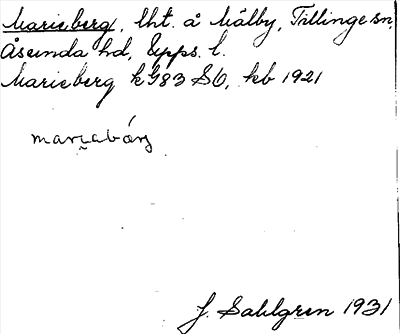 Marieberg, lht. å Mälby, Tillinge sn,
Åsunda hd, Upps. l.
Marieberg k G83 SÖ, kb 1921
J. Sahlgren 1931